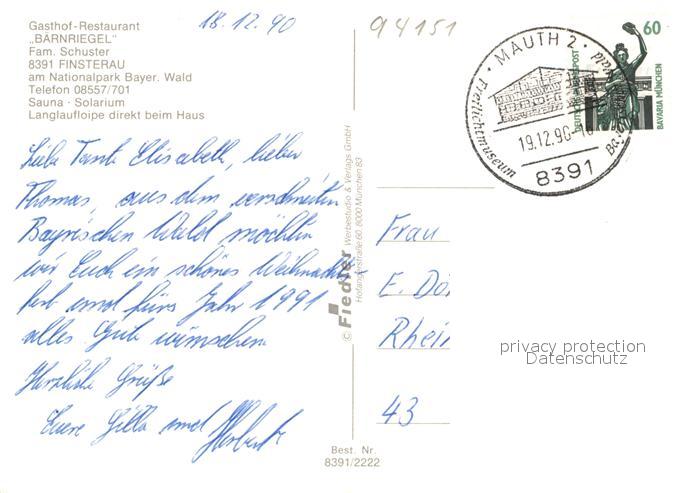 Gasthof-Restaurant
„BÄRNRIEGEL"
Fam. Schuster
8391 FINSTERAU
am Nationalpark Bayer. Wald
Telefon 08557/701
Sauna · Solarium
Langlaufloipe direkt beim Haus
18.12.90
94151
Liebe Tante Elisabeth, lieber
Thomas, aus dem verschneiten
Bayrischen Wald möchten
wir Euch ein schönes Weihnachts-
fest und fürs Jahr 1991
alles Gute wünschen.
Herzliche Grüße
Eure Gitta und Herbert
© Fiedler Werbestudio & Verlags GmbH
Hofangerstraße 60, 8000 München 83
Best. Nr.
8391/2222
MAUTH 2
Freilichtmuseum
19.12.90
8391
60
DEUTSCHE BUNDESPOST
BAVARIA MÜNCHEN
Frau
E. Do
Rhein
43
privacy protection
Datenschutz